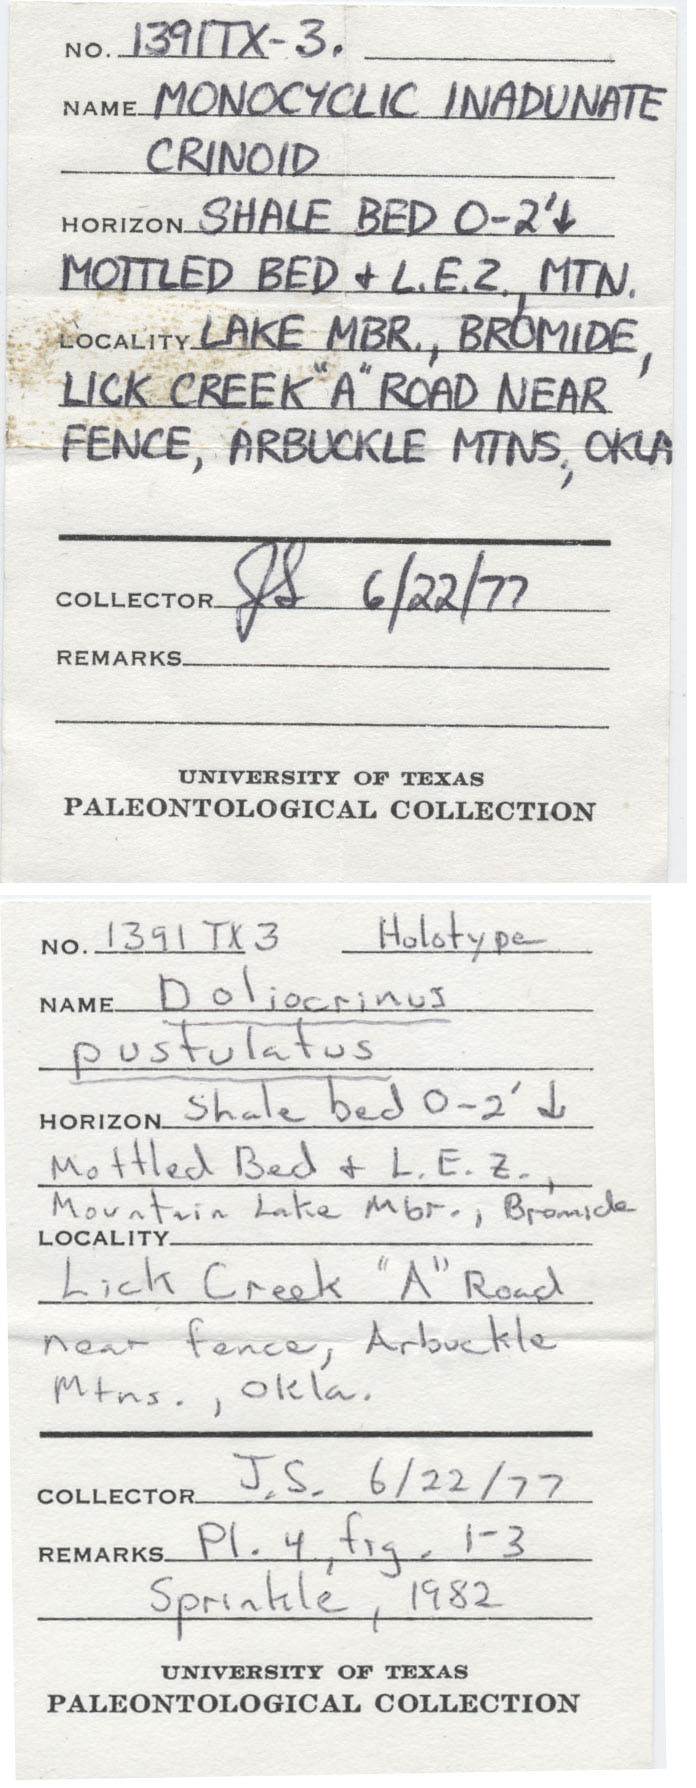 NO. 1391TX-3.
NAME MONOCYCLIC INADUNATE
CRINOID
HORIZON SHALE BED 0-2'↓
MOTTLED BED & L.E.Z., MTN.
LOCALITY LAKE MBR., BROMIDE,
LICK CREEK "A" ROAD NEAR
FENCE, ARBUCKLE MTNS., OKLA
COLLECTOR JS 6/22/77
REMARKS
UNIVERSITY OF TEXAS
PALEONTOLOGICAL COLLECTION
NO. 1391 TX 3 Holotype
NAME Doliocrinus
pustulatus
HORIZON Shale bed 0-2' ↓
Mottled Bed & L.E.Z.,
Mountain Lake Mbr., Bromide
LOCALITY
Lick Creek "A" Road
near fence, Arbuckle
Mtns., Okla.
COLLECTOR J.S. 6/22/77
REMARKS Pl. 4, fig. 1-3
Sprinkle, 1982
UNIVERSITY OF TEXAS
PALEONTOLOGICAL COLLECTION